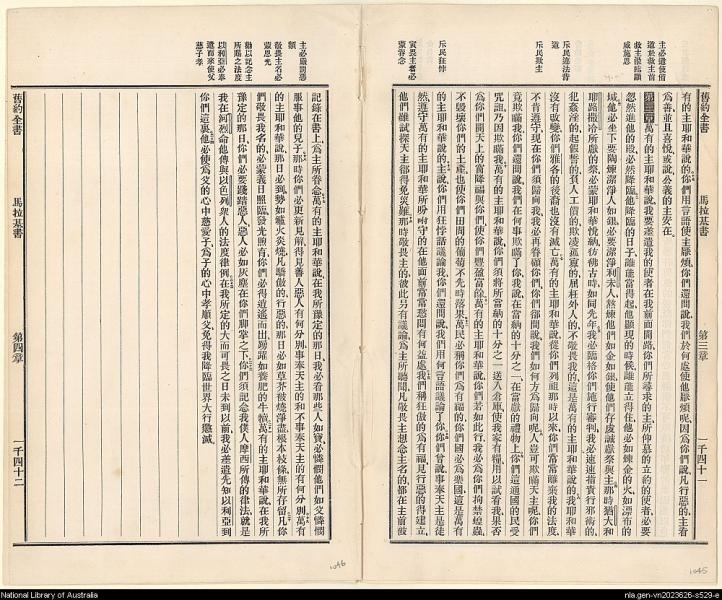 舊約全書
馬拉基書
第三章
一千四十一
主必遣使備
道於救主前
救主從臨顯
威施恩
斥民違法背
道
斥民欺主
斥民狂悖
寅畏主者必
蒙眷念
有的主耶和華說的你們用言語使主厭煩你們還問說我們於何處使他厭煩呢因爲你們說凡行惡的主看
爲善並且喜悅或說公義的主安在
第三章 萬有的主耶和華說我要差遣我的使者在我前面開路你們所尋求的主所仰慕的立約的使者必要
忽然進他的殿必然降臨他降臨的日子誰能當得起他顯現的時候誰能立得住他必如煉金的火如漂布的
域他必坐下要陶煉潔淨人如銀必要潔淨利未人熬煉他們如金如銀使他們存虔誠獻祭與主那時猶大和
耶路撒冷所獻的祭必蒙耶和華悅納彷彿古時如同先年我必臨格你們施行審判我必速速指責行邪術的
犯姦淫的起假誓的負人工價的欺凌孤寡的屈枉外人的不敬畏我的這是萬有的主耶和華說的我耶和華
沒有改變你們雅各的後裔也沒有滅亡萬有的主耶和華說從你們列祖那時以來你們常常離棄我的法度
不肯遵守現在你們須歸向我我必再眷顧你們你們卻問說我們如何方爲歸向呢人豈可欺瞞天主呢你們
竟欺瞞我你們還問說我們在何事欺瞞了你我說在當納的十分之一在當獻的禮物上你們這通國的民受
咒詛乃因欺瞞我萬有的主耶和華說你們須將所當納的十分之一送入倉庫使我家有糧用以試看我果否
爲你們開天上的窗降福與你們使你們豐盈有餘萬有的主耶和華說你們若如此行我必爲你們拘禁蝗蟲
不毀壞你們的土產也使你們田間的葡萄不先時落果萬民必稱你們爲有福的你們國必爲樂國這是萬有
的主耶和華說的主說你們用狂悖話議論我你們還問說我們用何言語議論了你你們曾說事奉天主是徒
然遵守萬有的主耶和華所吩咐守的在他面前常常愁悶有何益處我們稱狂傲的爲有福見行惡的得建立
他們雖試探天主都得免災難那時敬畏主的彼此另有議論爲主所聽聞凡敬畏主想念主名的都在主前被
主必嚴罰惡
類
敬畏主名必
蒙恩光
勸以記念主
所賜之法度
以利亞必奉
遣而來使父
慈子孝
記錄在書上爲主所眷念萬有的主耶和華說在我所豫定的那日我必看那些人如寶必憐憫他們如父憐憫
服事他的兒子那時你們必更新見前得見善人惡人有何分別事奉天主的和不事奉天主的有何分別萬有
的主耶和華說那日必到勢如爐火炎燒凡驕傲的行惡的那日必如草芥被燒淨盡根本枝條無所存留凡你
們敬畏我名的必蒙義日照臨發光煦育你們必得逍遙而出踴躍如養肥的牛犢萬有的主耶和華說在我所
豫定的那日你們必要踐踏惡人惡人必如灰塵在你們脚掌之下你們須記念我僕人摩西所傳的律法就是
我在何烈山命他傳與以色列衆人的法度律例在我所定的大而可畏之日未到以前我必差遣先知以利亞到
你們這裏他必使爲父的心中慈愛子爲子的心中孝順父免得我降臨世界大行懲滅
舊約全書
馬拉基書
第四章
一千四十二
1046
1045
National Library of Australia
nla.gen-vn2023626-s529-e